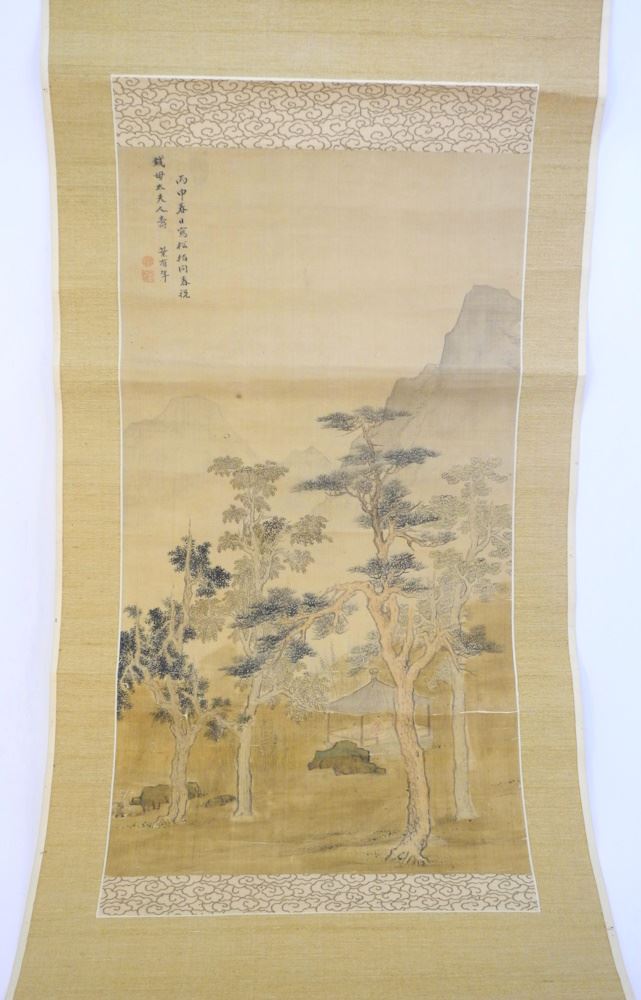 丙申春日寫松栢同春祝
錢母太夫人壽
葉有年